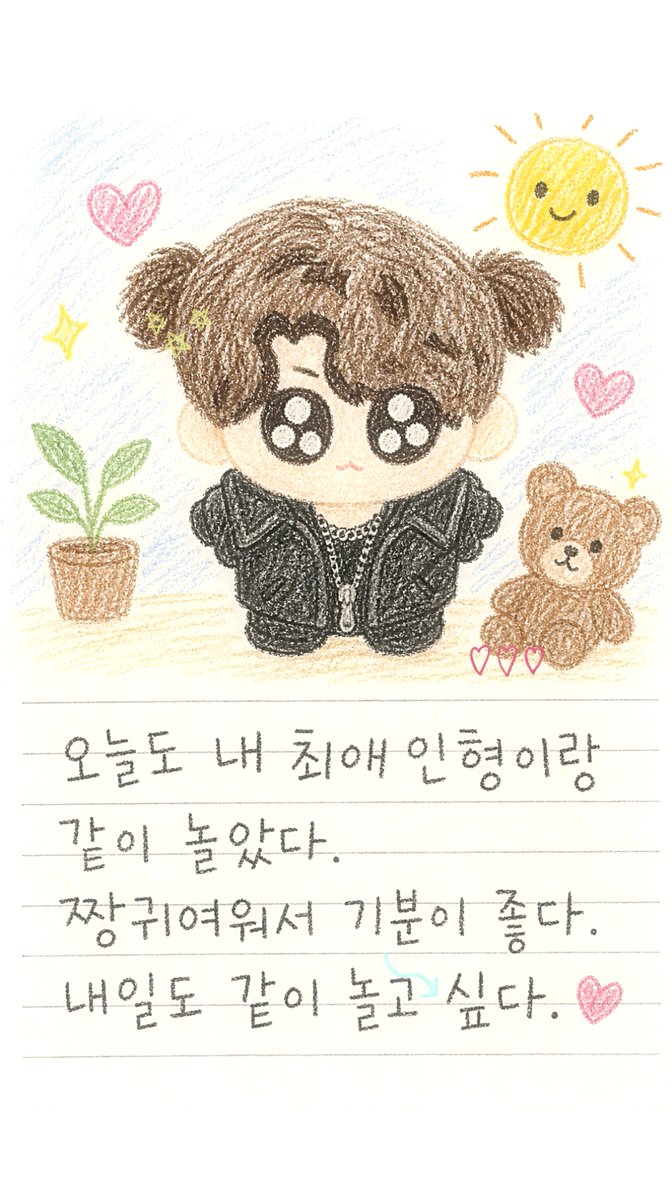 오늘도 내 최애 인형이랑
같이 놀았다.
짱귀여워서 기분이 좋다.
내일도 같이 놀고 싶다.